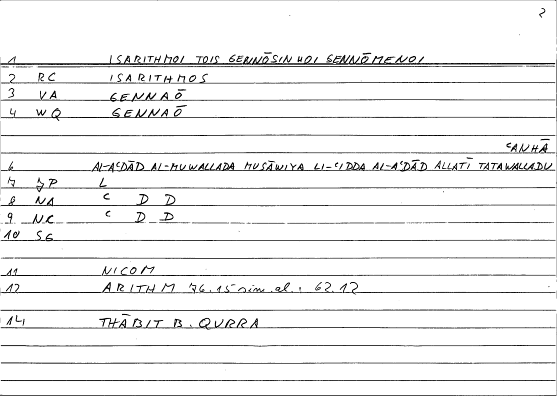 2
1 ISARITHMOI TOIS GENNŌSIN HOI GENNŌMENOI
2 RC ISARITHMOS
3 VA GENNAŌ
4 WQ GENNAŌ
ᶜANHĀ
6 AL-AᶜDĀD AL-MUWALLADA MUSĀWIYA LI-ᶜIDDA AL-AᶜDĀD ALLATĪ TATAWALLADU
7 JP L
8 NA ᶜ D D
9 NR ᶜ D D
10 SG
11 NICOM
12 ARITHM 76.15 sim.al.: 62.12
14 THĀBIT B. QURRA